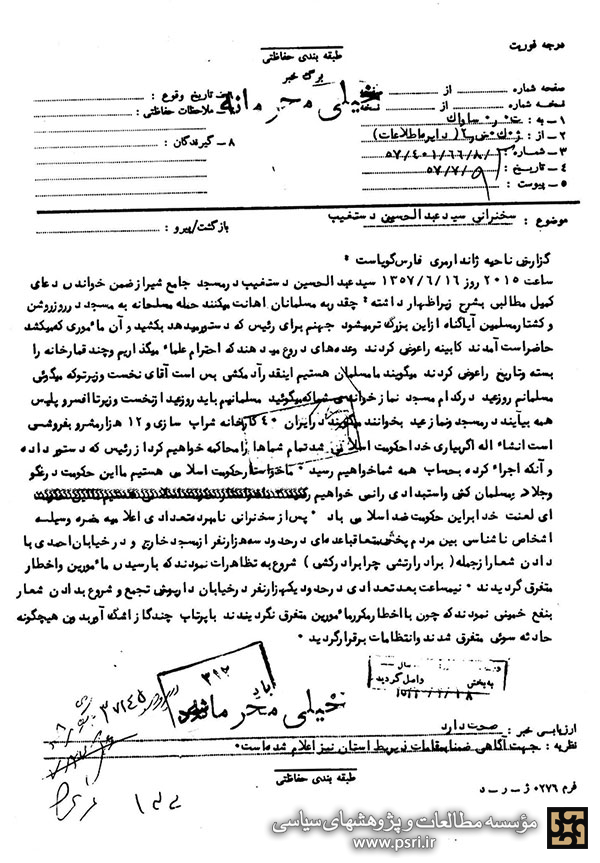 درجه فوریت
طبقه بندی حفاظتی
برگ خبر
خیلی محرمانه
صفحه شماره : از
نسخه شماره : از نسخه
۱ـ به : ت . ر . ساواک
۲ـ از : ژ (دایره اطلاعات)
۳ـ شماره : ۵۷/۴۰۱/۶۶/۸/۲
۴ـ تاریخ : ۵۷/۷/۵
۵ـ پیوست :
تاریخ وقوع :
ملاحظات حفاظتی :
۸ـ گیرندگان :
موضوع : سخنرانی سید عبدالحسین دستغیب
بازگشت/پیرو :
گزارش ناحیه ژاندارمری فارس گویاست *
ساعت ۲۰۱۵ روز ۱۳۵۷/۶/۱۶ سید عبدالحسین دستغیب در مسجد جامع شیراز ضمن خواندن دعای
کمیل مطالبی بشرح زیر اظهار داشته : چقدر به مسلمانان اهانت میکنند حمله مسلحانه به مسجد در روز روشن
و کشتار مسلمین آیا گناه از این بزرگ تر میشود جهنم برای رئیس که دستور میدهد بکشید و آن مأموری که میکشد
حاضر است آمدند کابینه را عوض کردند وعده های دروغ میدهند که احترام علماء میگذاریم و چند قمارخانه را
بسته و تاریخ را عوض کردند میگویند ما مسلمان هستیم اینقدر آدمکشی بس است آقای نخست وزیر تو که میگوئی
مسلمانم روز عید در کدام مسجد نماز خواندی شما که میگوئید مسلمانیم باید روز عید از نخست وزیر تا افسر و پلیس
همه بیایند در مسجد و نماز عید بخوانند میگویند در ایران ۴۰ کارخانه شراب سازی و ۱۲ هزار مشروبفروشی
است انشاء اله اگر بیاری خدا حکومت اسلامی شد تمام شماها را محاکمه خواهیم کرد از رئیس که دستور داده
و آنکه اجراء کرده بحساب همه شما خواهیم رسید * ما خواستار حکومت اسلامی هستیم ما این حکومت دروغگو
و جلاد و مسلمان کش و استبدادی را نمی خواهیم
ای لعنت خدا بر این حکومت ضد اسلامی باد * پس از سخنرانی نامبرده تعدادی اعلامیه مضره وسیله
اشخاص ناشناس بین مردم پخش متعاقبا عده ای در حدود سه هزار نفر از مسجد خارج و در خیابان احمدی با
دادن شعار از جمله ( برادر ارتشی چرا برادر کشی ) شروع به تظاهرات نمودند که با رسیدن مأمورین و اخطار
متفرق گردیدند * نیمساعت بعد تعدادی در حدود یکهزار نفر در خیابان داریوش تجمع و شروع بدادن شعار
بنفع خمینی نمودند که چون با اخطار مکرر مأمورین متفرق نگردیدند با پرتاپ چند گاز اشک آور بدون هیچگونه
حادثه سوئی متفرق شدند و انتظامات برقرار گردید *
۳۱۲
سال
به بخش واصل گردید
خیلی محرمانه
ارزیابی خبر : صحت دارد
نظریه : جهت آگاهی ضمنا بمقامات ذیربط استان نیز اعلام شده است *
طبقه بندی حفاظتی
فرم ۰۲۷۶ ژ ـ ر ـ د
۱۲۲
مؤسسه مطالعات و پژوهشهای سیاسی
www.psri.ir